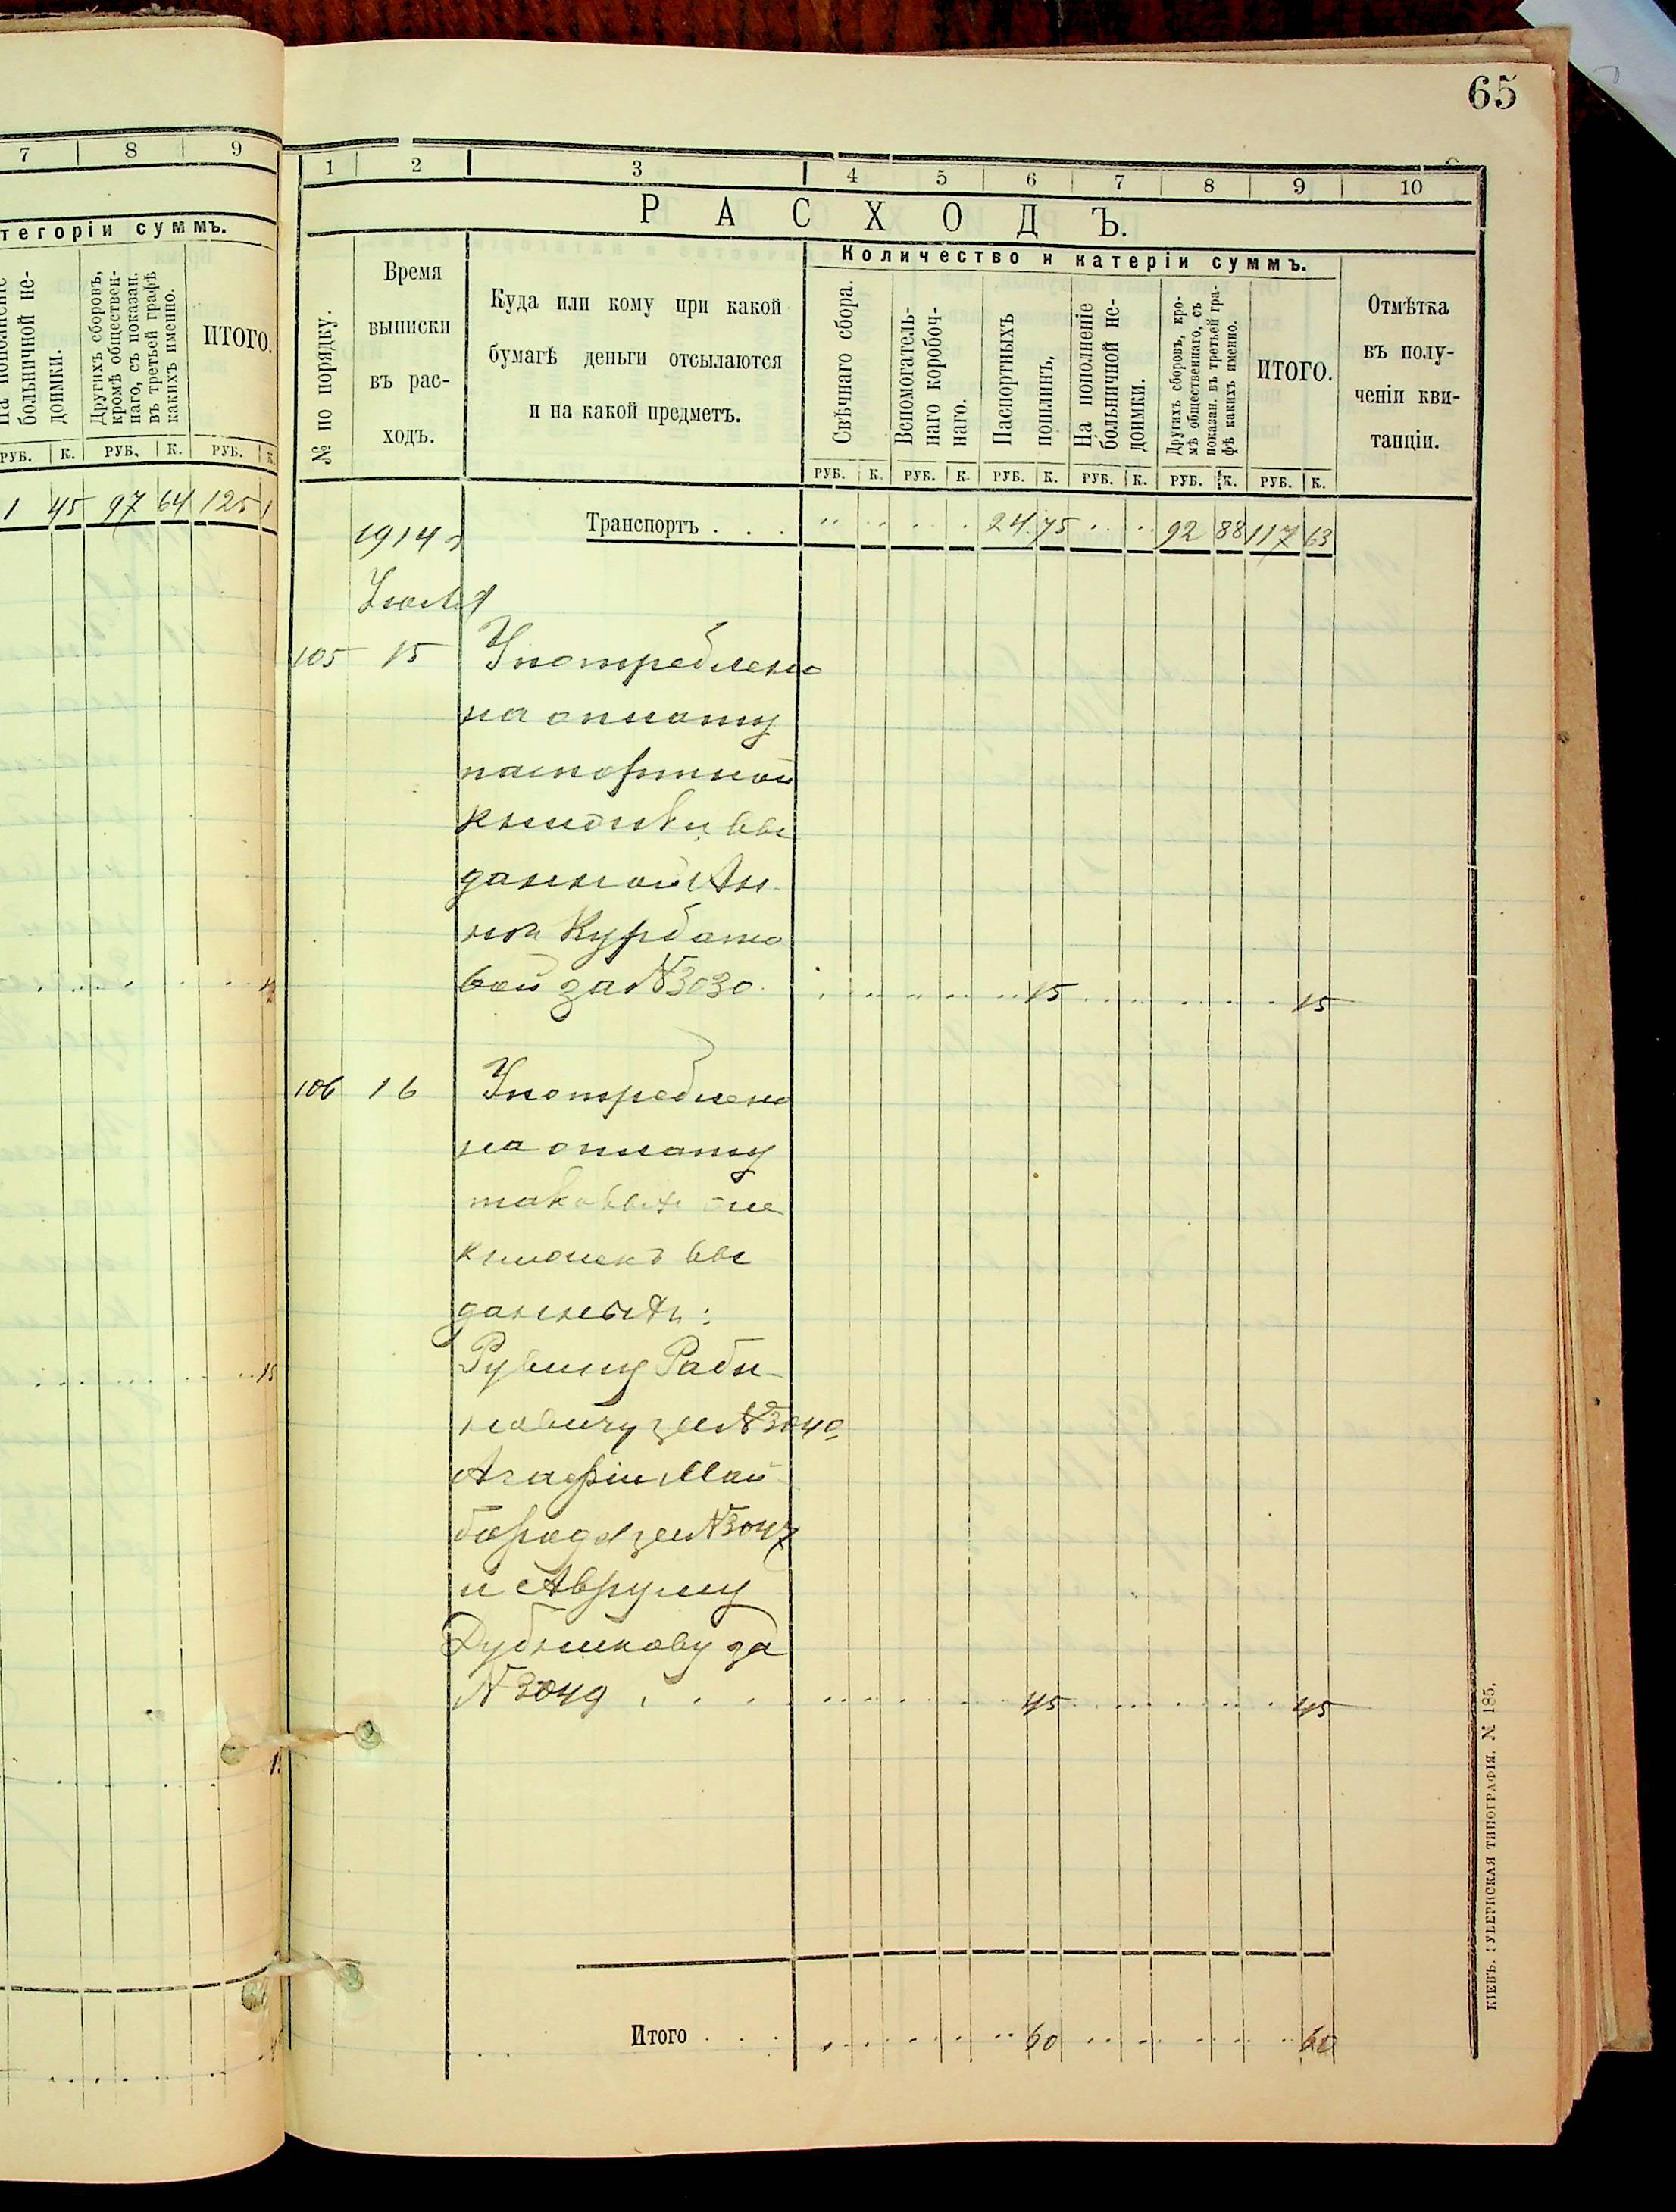 65
7 8 9
тегоріи суммъ.
больничной не-
доимки.
Другихъ сборовъ,
кромѣ обществен-
наго, съ показан.
въ третьей графѣ
какихъ именно.
ИТОГО.
РУБ. К. РУБ. К. РУБ. К.
1 45 97 64 125
15
1 2 3 4 5 6 7 8 9 10
РАСХОДЪ.
№ по порядку.
Время
выписки
въ рас-
ходъ.
Куда или кому при какой
бумагѣ деньги отсылаются
и на какой предметъ.
Количество и катеріи суммъ.
Свѣчнаго сбора.
Вспомогатель-
наго коробоч-
наго.
Паспортныхъ
пошлинъ.
На пополненіе
больничной не-
доимки.
Другихъ сборовъ, кро-
мѣ общественнаго, съ
показан. въ третьей гра-
фѣ какихъ именно.
ИТОГО.
Отмѣтка
въ полу-
ченіи кви-
танціи.
РУБ. К. РУБ. К. РУБ. К. РУБ. К. РУБ. К. РУБ. К.
Транспортъ . . . 24 75 92 88 117 63
1914 г
Іюля
105 15 Употреблено
на оплату
паспортной
книжки, вы
данной Ан-
ной Курбато
вой за №3030. 15 15
106 16 Употреблено
на оплату
таковыхъ же
книжекъ вы
данныхъ:
Рувину Раби-
новичу за №3040
Агафіи Май-
бород за №3047
и Авруму
Дубникову за
№3049 . . . 45 45
Итого . . . 60 60
КІЕВЪ. ГУБЕРНСКАЯ ТИПОГРАФІЯ. № 185.